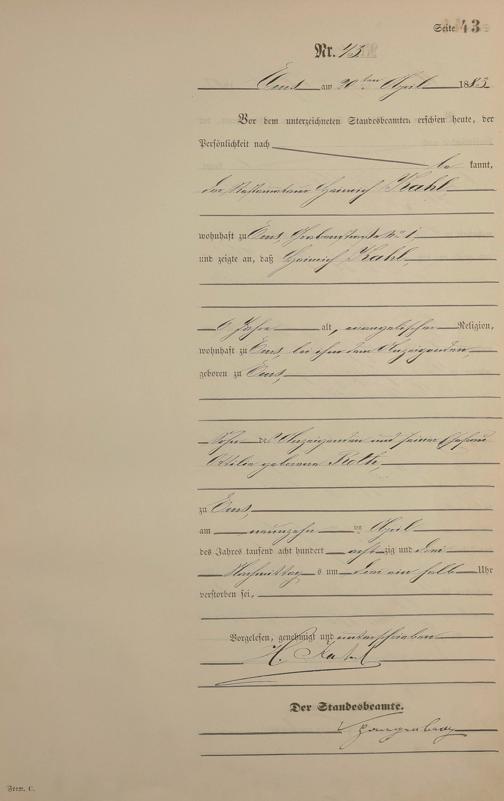 Seite 43
Nr. 43
Ems am 20ten April 1883
Vor dem unterzeichneten Standesbeamten erschien heute, der
Persönlichkeit nach
be kannt,
der Heinrich Kahl,
wohnhaft zu Ems, Grabenstraße No 1,
und zeigte an, daß Heinrich Kahl,
6 Jahre alt, evangelischer Religion,
wohnhaft zu Ems, bei ihm dem Anzeigenden,
geboren zu Ems,
Sohn des Anzeigenden und seiner Ehefrau
Ottilie geborenen Roth,
zu Ems,
am neunzehn ten April
des Jahres tausend acht hundert acht zig und drei
Nachmittags um drei ein halb Uhr
verstorben sei,
Vorgelesen, genehmigt und unterschrieben
H. Kahl
Der Standesbeamte.
Form. C.